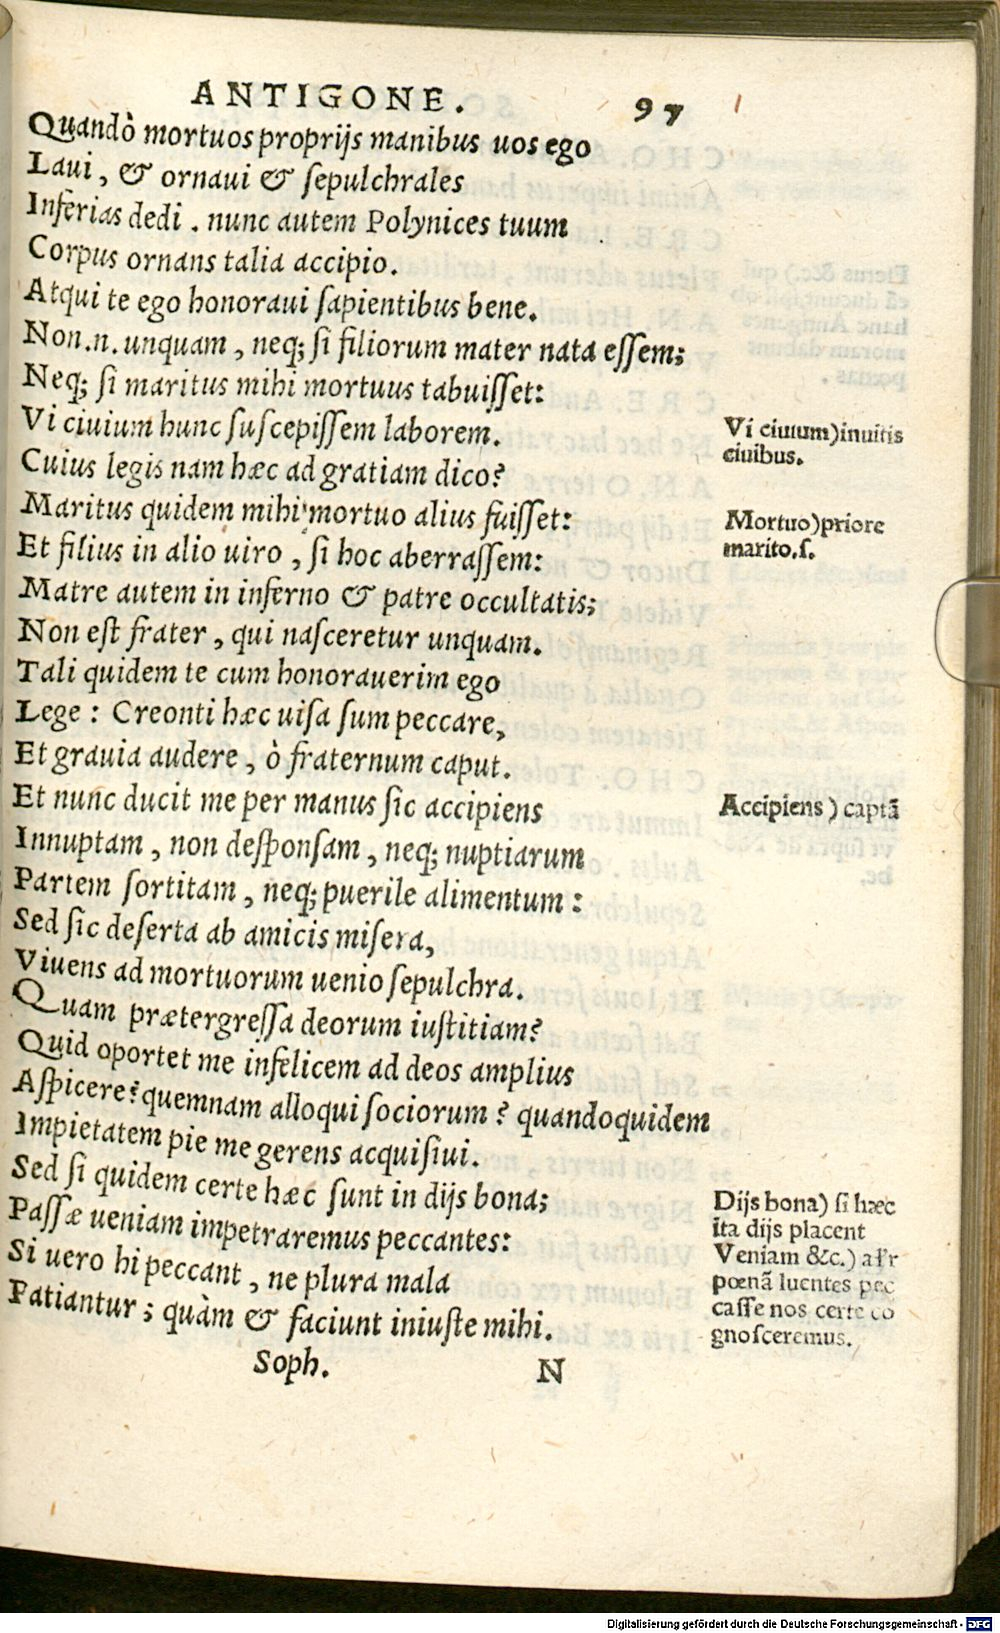 ANTIGONE. 97
Quandò mortuos proprijs manibus uos ego
Laui, & ornaui & ſepulchrales
Inferias dedi. nunc autem Polynices tuum
Corpus ornans talia accipio.
Atqui te ego honoraui ſapientibus bene.
Non.n.unquam, neq; ſi filiorum mater nata eſſem;
Neq; ſi maritus mihi mortuus tabuiſſet:
Vi ciuium hunc ſuſcepiſſem laborem.
Vi ciuium)inuitis
ciuibus.
Cuius legis nam hæc ad gratiam dico?
Maritus quidem mihi mortuo alius fuiſſet:
Mortuo)priore
marito.ſ.
Et filius in alio uiro, ſi hoc aberraſſem:
Matre autem in inferno & patre occultatis;
Non eſt frater, qui naſceretur unquam.
Tali quidem te cum honorauerim ego
Lege: Creonti hæc uiſa ſum peccare,
Et grauia audere, ò fraternum caput.
Et nunc ducit me per manus ſic accipiens
Accipiens) captā
Innuptam, non deſponſam, neq; nuptiarum
Partem ſortitam, neq; puerile alimentum:
Sed ſic deſerta ab amicis miſera,
Viuens ad mortuorum uenio ſepulchra.
Quam prætergreſſa deorum iuſtitiam?
Quid oportet me infelicem ad deos amplius
Aſpicere? quemnam alloqui ſociorum? quandoquidem
Impietatem pie me gerens acquiſiui.
Sed ſi quidem certe hæc ſunt in dijs bona;
Paſſæ ueniam impetraremus peccantes:
Si uero hi peccant, ne plura mala
Patiantur; quàm & faciunt iniuſte mihi.
Dijs bona) ſi hæc
ita dijs placent
Veniam &c.)
pœnā luentes pec
caſſe nos certe co
gnoſceremus.
Soph. N
Digitalisierung gefördert durch die Deutsche Forschungsgemeinschaft - DFG